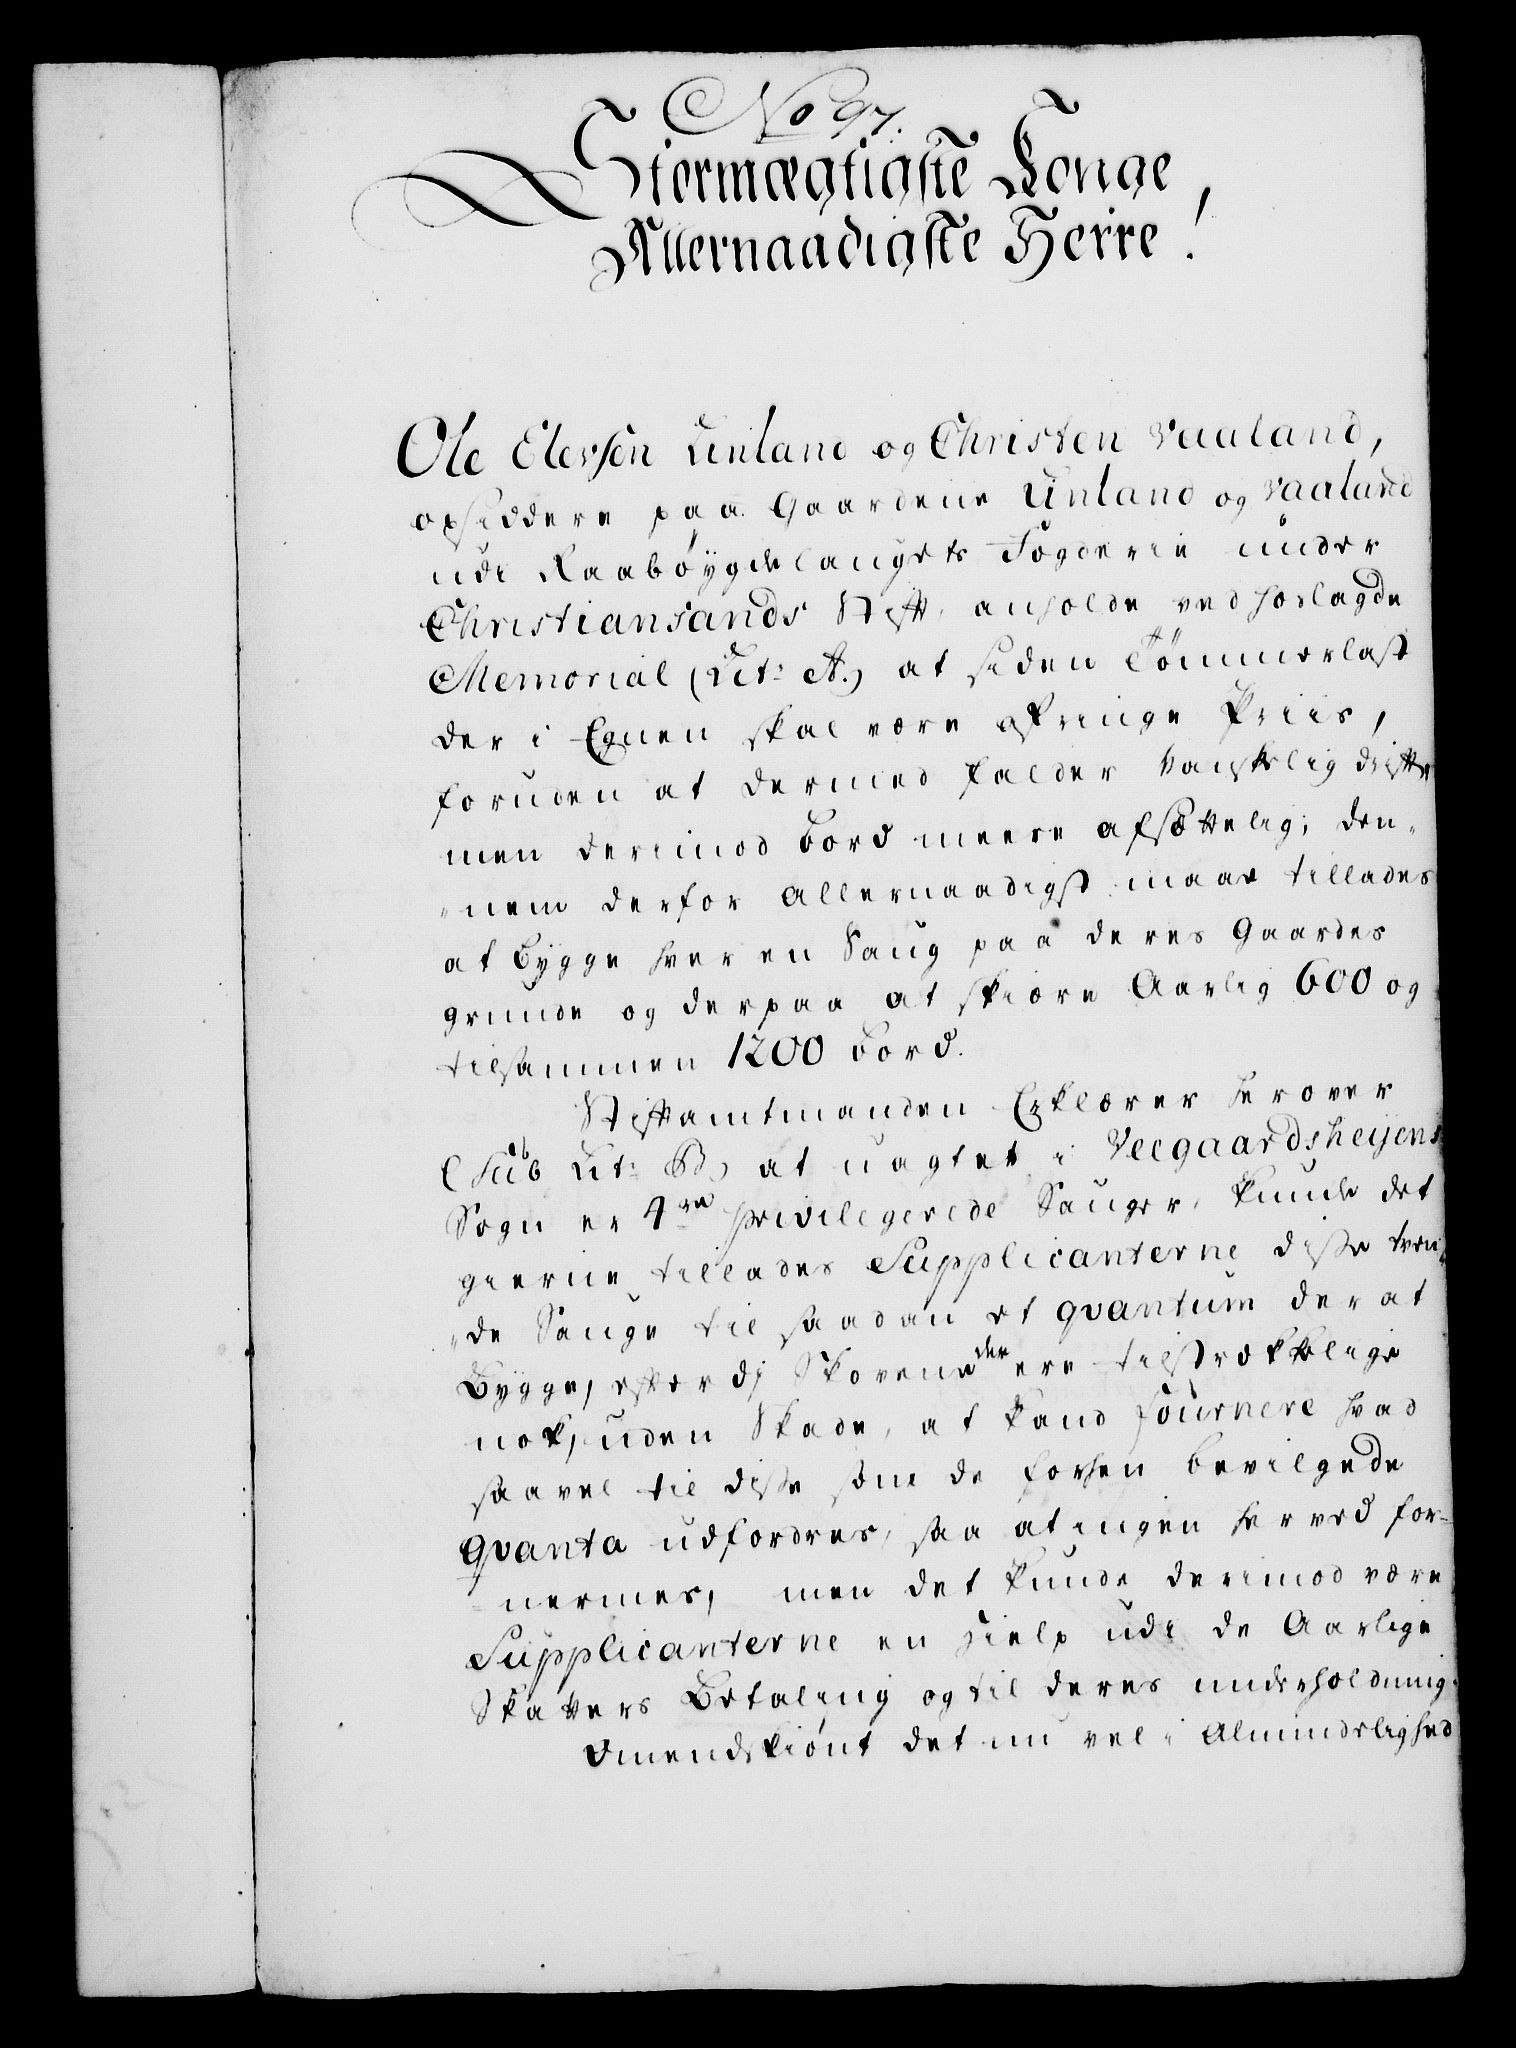 No 97.
Stormægtigste Konge
Allernaadigste Herre!
Ole Elevsen Linland og Christen Vaaland,
opsiddere paa Gaardene Linland og Vaaland
udi Raabøygdelaugets Fogderie under
Christiansands Stift, anholde ved hoslagde
Memorial (Lit: A.) at siden Tømmerlast
der i Egnen skal være af ringe Priis,
foruden at dermed falder vanskelig drift,
men derimod Bord meere afsættelig; den-
nem derfor Allernaadigst maae tillades
at bygge hver en Saug paa deres Gaardes
grunde og derpaa at skiære Aarlig 600 og
tilsammen 1200 Bord.
Stiftamtmanden Erklærer herover
(sub Lit: B) at uagtet i Veegaardsheijens
Sogn er 4re privilegerede Sauger, kunde det
gierne tillades Supplicanterne disse tven-
de Sauge til saadan et qvantum der at
Bygge, efterdj Skovene der ere tilstrækkelige
nok, uden Skade, at kand fournere hvad
saavel til disse som de forhen bevilgede
Qvanta udfordres, saa at ingen herved for-
nermes, men det kunde derimod være
Supplicanterne en Hielp udi de Aarlige
Skatters Betaling og til deres underholdning.
Omendskiønt det nu vel i Almindelighed